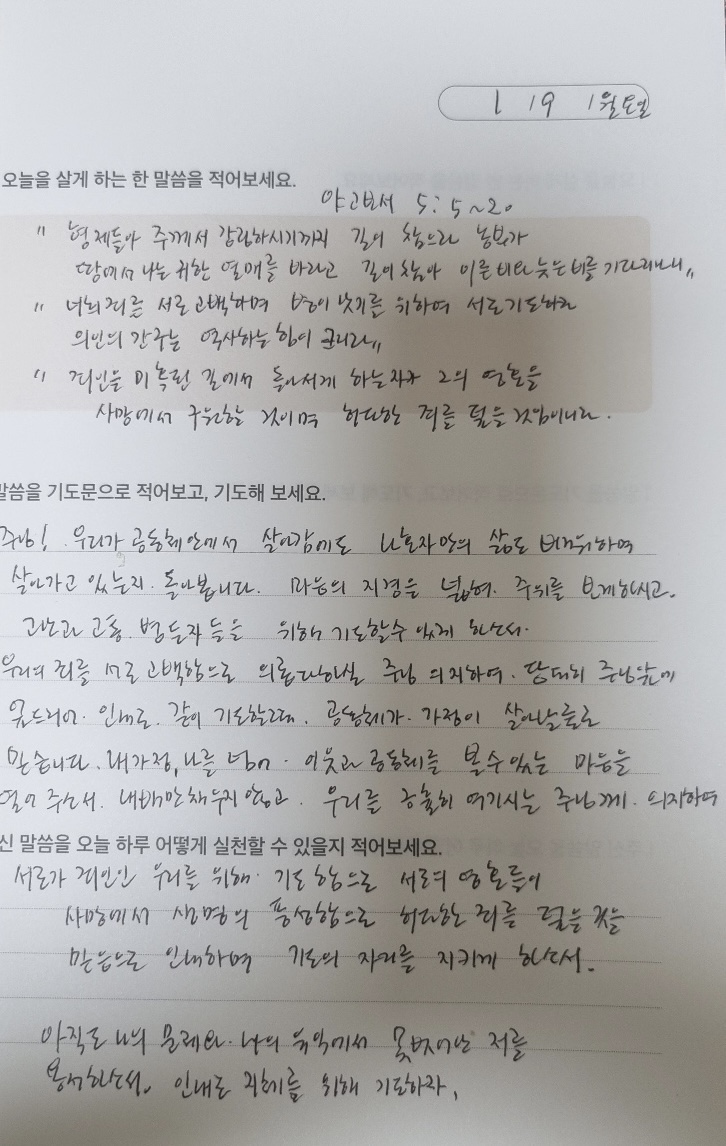 1 19 1월토일
오늘을 살게 하는 한 말씀을 적어보세요.
야고보서 5: 5~20
" 형제들아 주께서 강림하시기까지 길이 참으라 농부가
땅에서 나는 귀한 열매를 바라고 길이참아 이른비와 늦은비를 기다리나니"
" 너희 죄를 서로 고백하며 병이 낫기를 위하여 서로기도하라
의인의 간구는 역사하는 힘이 큼이라"
" 죄인을 미혹된 길에서 돌아서게 하는자가 그의 영혼을
사망에서 구원할 것이며 허다한 죄를 덮을것임이니라.
말씀을 기도문으로 적어보고, 기도해 보세요.
주님! 우리가 공동체안에서 살아감에도 나혼자만의 삶도
살아가고 있는지 돌아봅니다. 마음의 지경을 넓혀. 주위를 보게하시고.
고난과 고통. 병든자들을 위해 기도할수 있게 하소서.
우리의 죄를 서로 고백함으로 주님 의지하여. 주님앞에
엎드리어. 인내로. 같이 기도할때. 공동체가. 가정이 살아날줄로
믿습니다. 내가정, 나를 넘어. 이웃과 공동체를 볼수있는 마음을
열어 주소서. 내배만채우지않고. 우리를 긍휼히 여기시는 주님께. 의지하여
신 말씀을 오늘 하루 어떻게 실천할 수 있을지 적어보세요.
서로가 죄인인 우리를 위해. 기도함으로 서로의 영혼들이
사망에서 생명의 풍성함으로 허다한 죄를 덮을 것을
믿음으로 인내하며 기도의 자리를 지키게 하소서.
아직도 나의 문제와. 나의 유익에서 못벗어난 저를
용서하소서. 인내로 지체를 위해 기도하자.